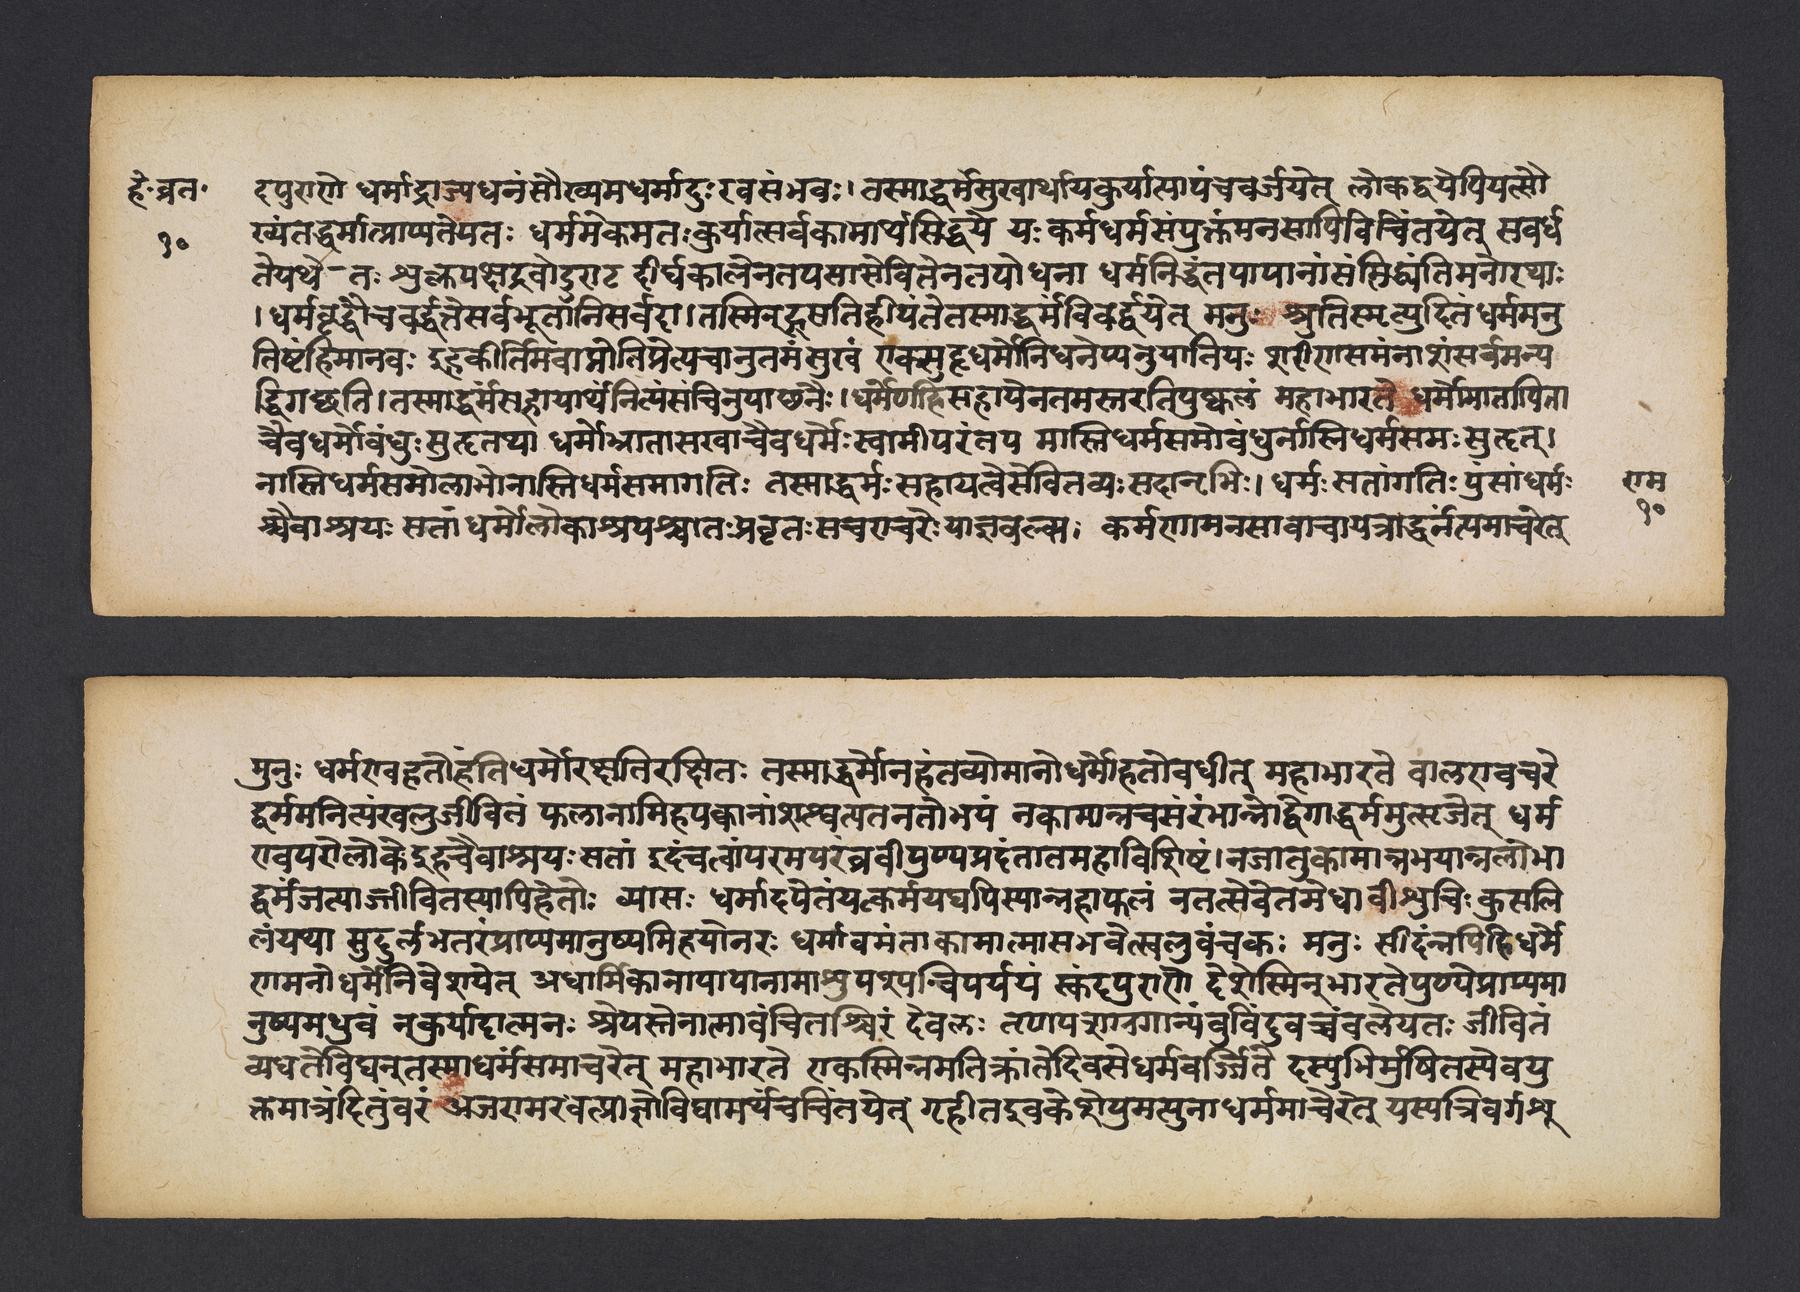 हे·व्रत·
१०
दपुराणे धर्माद्राज्यधनंसौख्यमधर्मादुःखसंभवः। तस्माद्धर्मसुखार्थायकुर्यात्पापंचवर्जयेत् लोकद्वयेपियत्सौ
ख्यंतद्धर्मात्प्राप्यतेयतः धर्ममेकमतःकुर्यात्सर्वकामार्थसिद्धये यःकर्मधर्मसंयुक्तंमनसापिविचिंतयेत् सवर्ध
तेयथे-तः शुक्लपक्षइवोडुराट दीर्घकालेनतपसासेवितेनतपोधना धर्मनिर्द्धूतपापानांसंसिद्ध्यंतिमनोरथाः
।धर्मवृद्धौचवर्द्धतेसर्वभूतानिसर्वदा।तस्मिन्ह्रसतिहीयंतेतस्माद्धर्मंविवर्द्धयेत् मनुः श्रुतिस्मृत्युदितंधर्ममनु
तिष्टंहिमानवः इहकीर्तिमवाप्नोतिप्रेत्यचानुतमंसुखं एकसुहृधर्मोनिधनेप्यनुयातियः शरीरासमंनाशंसर्वमन्य
द्धिगछति।तस्माद्धर्मंसहायार्थंनित्यंसंचिनुयाछनैः।धर्मेणहिसहायेनतमस्तरतिपुष्कलं महाभारते धर्मोमातापिता
चैवधर्मोबंधुःसुहृतथा धर्मोभ्रातासखाचैवधर्मःस्वामीपरंतप मास्तिधर्मसमोबंधुर्नास्तिधर्मसमःसुहृत्।
नास्तिधर्मसमोलाभोनास्तिधर्मसमागतिः तस्माद्धर्मःसहायत्वेसेवितव्यःसदानृभिः।धर्मःसतांगतिःपुंसांधर्मः
श्चैवाश्रयः सतां धर्मोलोकाश्रयश्चातःप्रवृतःसचराचरैःयाज्ञवल्क्य। कर्मणामनसावाचायत्नाद्धर्मंत्यमाचरेत्
राम
१०
मुनुः धर्मएवहतोहंतिधर्मोरक्षतिरक्षितः तस्माद्धर्मोनहंतव्योमानोधर्मोहतोवधीत् महाभारते बालएवचरे
द्धर्ममनित्यंखलुजीवितं फलानामिहपक्वानांशश्वत्पतनतोभयं नकामान्नचसंरंभान्नोद्वेगाद्धर्ममुत्सृजेत् धर्म
एवपरोलोकेइहचैवाश्रयःसतां इदंचत्वांपरमपरंब्रवीपुण्यप्रदंतातमहाविशिष्टं।नजातुकामान्नभयान्नलोभा
द्धर्मंजत्याज्जीवितस्यापिहेतोः व्यासः धर्मादपेतंयत्कर्मयद्यपिस्यान्महाफलं नतत्सेवेतमेधावीशुचिःकुसलि
लंयथा सुदुर्लभतरंप्राप्यमानुष्यमिहयोनरः धर्मावमंताकामात्मासभवेत्खलुवंचकः मनुः सीदंन्नपिहिधर्मे
णामनोधर्मेनिवेशयेत् अधार्मिकानापापानामाशुपश्यन्विपर्ययं स्कंदपुराणे देशेस्मिन्भारतेपुण्येप्राप्यमा
नुष्यमध्रुवं नकुर्यादात्मनः श्रेयस्तेनात्मावंचितश्चिरं देवलः जीवितं
व्यधतेविघनुतस्माधर्मसमाचरेत् महाभारते एकस्मिन्नमतिक्रांतेदिवसेधर्मवर्ज्जिते दस्युभिर्मुषितस्येवयु
क्तमात्रंदितुंवरं अजरामरवत्प्राज्ञोविद्यामर्थंचचिंतयेत् गृहीतइवकेशेषुमत्युनाधर्ममाचेरेत् यस्यत्रिवर्गशू